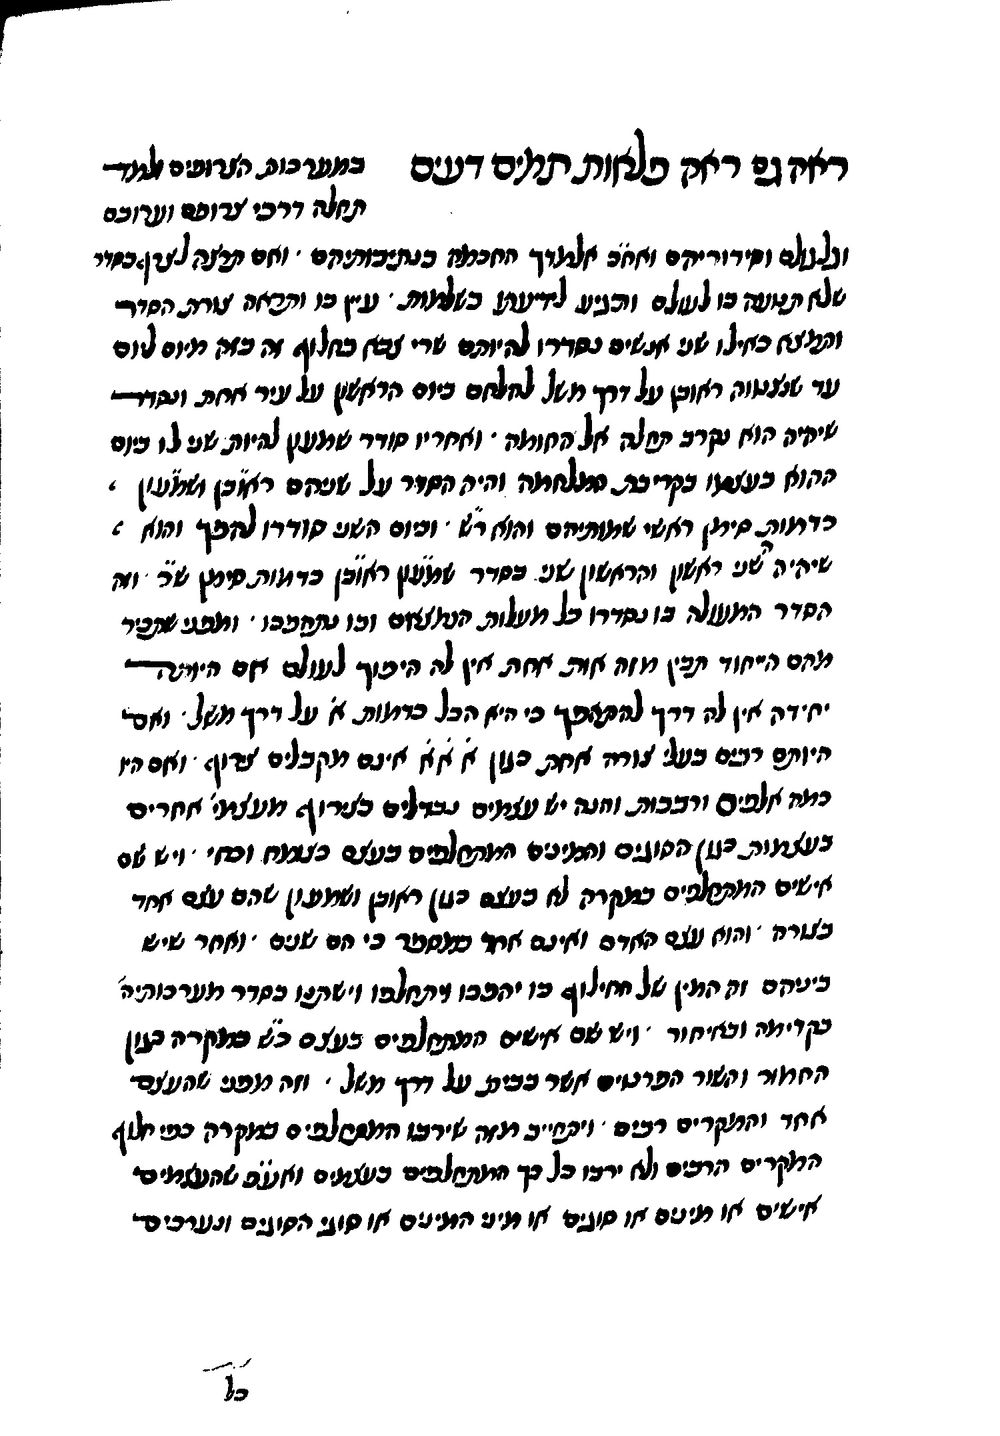 ראה גם ראה פלאות תמים דעים במערכות הצרופים ולמד
תחלה דרכי צרופם וערובם
וגלגולם וסידוריהם ואח״כ אלמדך החכמה בנתיבותיהם · ואם תרצה לצרף כסדר
שלא תטעה בו לעולם ותגיע לידיעתו בשלמות · עיין בו ותראה צורת הסדר
ותמצא כאילו שני אנשים נסדרו להיותם שרי צבא בחלוף זה בזה מיום ליום
עד שנצטוה ראובן על דרך משל להלחם ביום הראשון על עיר אחת ונסדר
שיהיה הוא נקרב תחלה אל החומה · ואחריו סודר שמעון להיות שני לו ביום
ההוא בעצמו בקריבת מלחמה והיה הסדר על שניהם רא״ובן ושמ״עון
כדמות סימן ראשי שמותיהם והוא ר״ש · וביום השני סודרו להפך והוא
שיהיה השני ראשון והראשון שני כסדר שמ״עון רא״ובן כדמות סימן ש״ר · וזה
הסדר המעולה בו נסדרו כל מעלות הנמצאים ובו נתהפכו · ומפני שתכיר
מהם הייחוד תבין מזה אות אחת אין לה היפוך לעולם אם היותה
יחידה אין לה דרך להתהפך כי היא הכל כדמות א׳ על דרך משל · ואם
היותם רבים בעלי צורה אחת כגון א׳ א׳ א׳ אינם מקבלים צרוף · ואם היו
כמה אלפים ורבבות והנה יש עצמים נבדלים בצירוף מעצמי׳ אחרים
בעצמות כגון הסוגים והמינים המתחלפים בעצם כצומח וכחי · ויש שם
אישים המתחלפים במקרה לא בעצם כגון ראובן ושמעון שהם עצם אחד
בצורה · והוא עצם האדם ואינם אחד במספר כי הם שנים · ואחר שיש
ביניהם זה המין של החילוף בו יהפכו ויתחלפו וישתנו בסדר מערכותיה׳
בקדימה ובאיחור · ויש שם אישים המתחלפים בעצם כ״ש במקרה כגון
החמור והשור הפרטיים אשר בבית על דרך משל · וזה מפני שהעצם
אחד והמקרים רבים · ויתחייב מזה שירבו המתחלפים במקרה כפי חלוף
המקרים הרבים ולא ירבו כל כך המתחלפים בעצמים ואע״פ שהעצמים
אישים או מינים או סוגים או מיני המינים או סוגי הסוגים ונערכים
כל